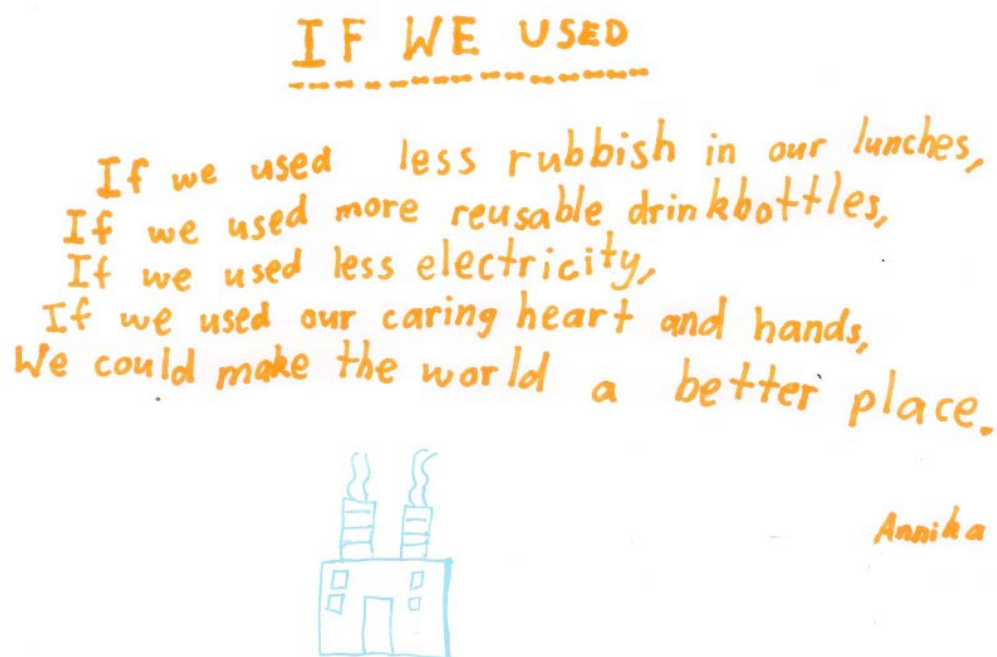 IF WE USED
If we used less rubbish in our lunches,
If we used more reusable drinkbottles,
If we used less electricity,
If we used our caring heart and hands,
We could make the world a better place.
Annika